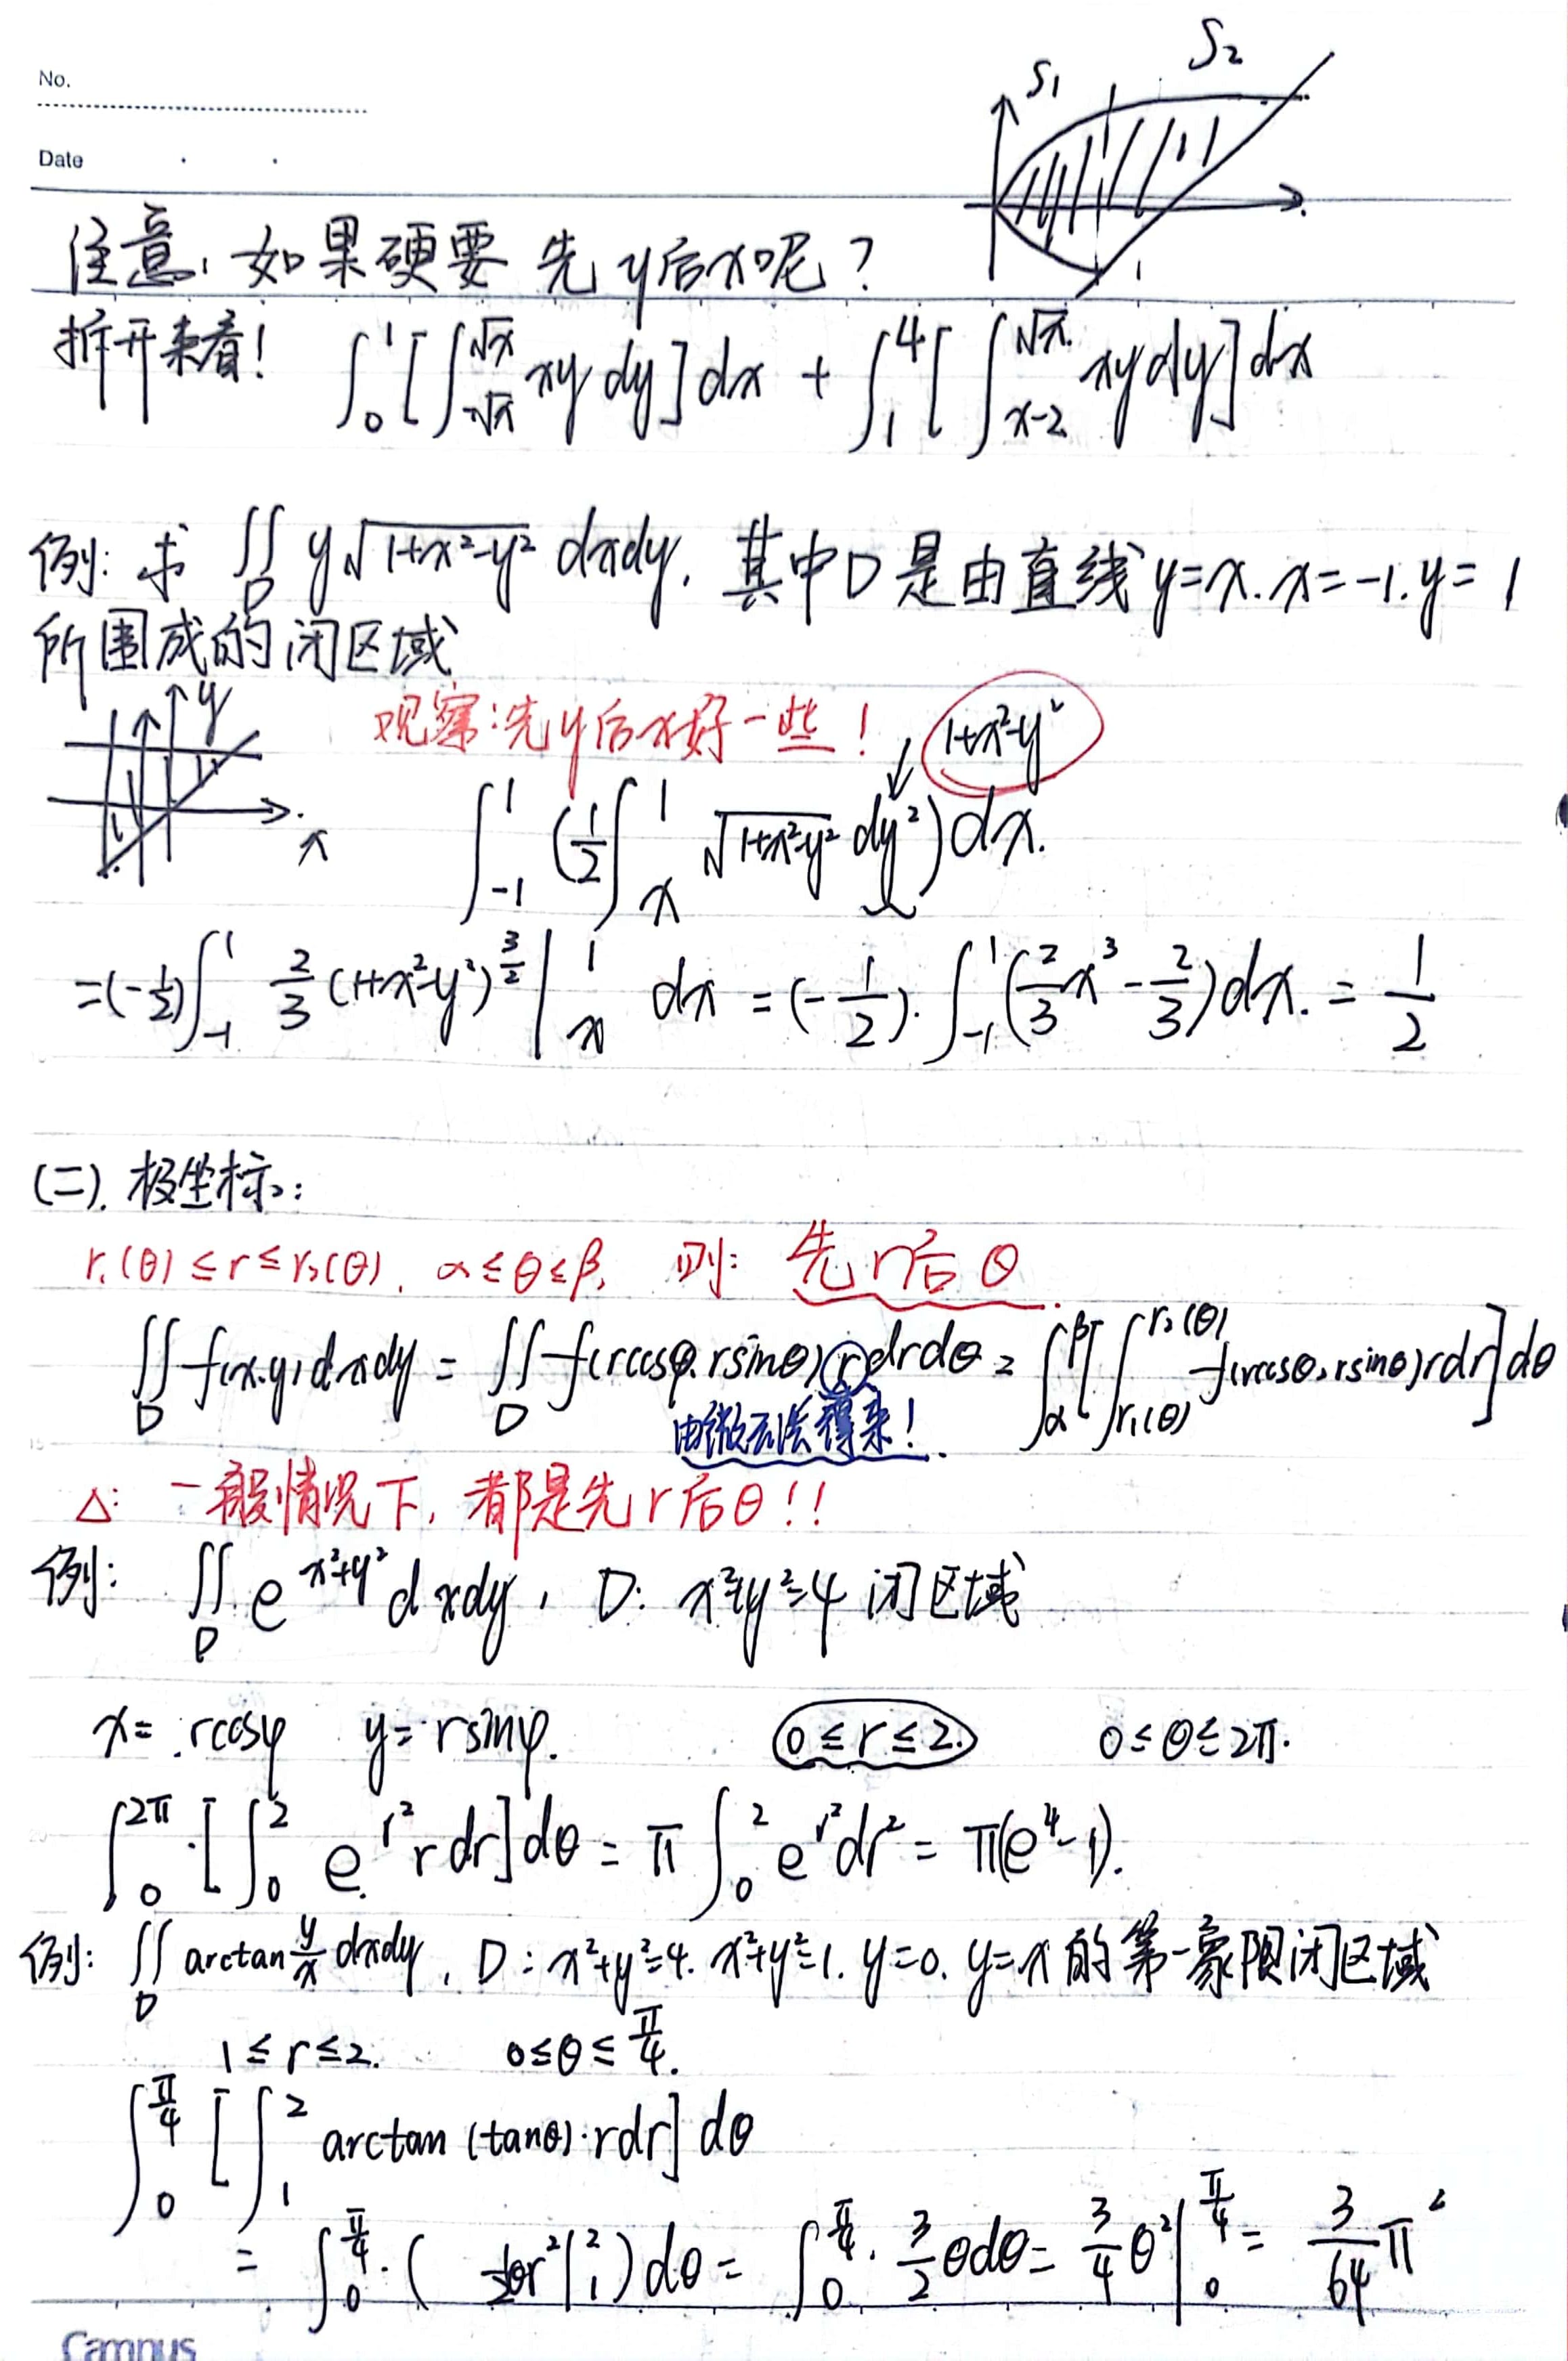 No.
Date
S₁ S₂
1
注意, 如果硬要 先y后x呢?
拆开来看! ∫₀¹[∫_{-√x}^{√x} xy dy]dx + ∫₁⁴[∫_{x-2}^{√x} xy dy]dx
例: 求 ∬_D y√(1+x²-y²) dxdy, 其中D是由直线y=x. x=-1. y=1
所围成的闭区域
观察:先y后x好一些!
1+x²-y²
y
x
∫_{-1}^{1} (½∫_x^1 √(1+x²-y²) dy²)dx.
=(-½)∫_{-1}^{1} ⅔(1+x²-y²)^{3/2} |_x^1 dx = (-½)·∫_{-1}^{1}(⅔x³-⅔)dx. = ½
(二). 极坐标:
r₁(θ)≤r≤r₂(θ). α≤θ≤β, 则: 先r后θ
∬_D f(x,y)dxdy = ∬_D f(rcosφ, rsinθ) r drdθ = ∫_α^β[∫_{r₁(θ)}^{r₂(θ)} f(rcosθ, rsinθ)rdr]dθ
由微元法得来!
△: 一般情况下, 都是先r后θ!!
例: ∬_D e^{x²+y²} dxdy, D: x²+y²=4 闭区域
x= rcosφ y= rsinφ. 0≤r≤2. 0≤θ≤2π.
∫₀^{2π}·[∫₀² e^{r²} r dr]dθ = π∫₀² e^{r²}dr² = π(e⁴-1).
例: ∬_D arctan y/x dxdy, D: x²+y²=4. x²+y²=1. y=0. y=x 的第一象限闭区域
1≤r≤2. 0≤θ≤π/4.
∫₀^{π/4} [∫₁² arctan (tanθ)·rdr] dθ
= ∫₀^{π/4}·( ½θr²|₁²)dθ = ∫₀^{π/4}· 3/2 θdθ = ¾θ²|₀^{π/4} = 3/64 π²
Campus